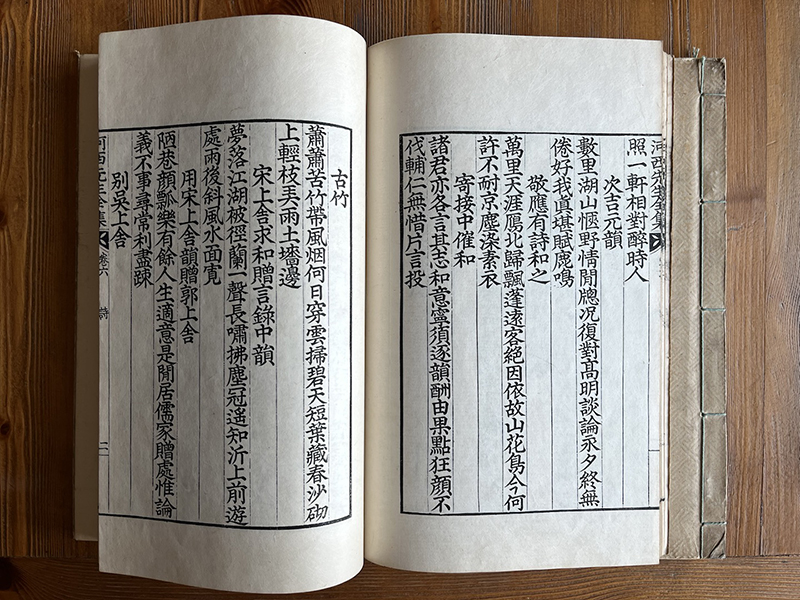 河西先生全集
照一軒相對醉時人
次吉元韻
數里湖山愜野情閒牕况復對高明談論永夕終無
倦好我真堪賦鹿鳴
敬應有詩和之
萬里天涯鴈北歸飄蓬遠客絕因依故山花鳥今何
許不耐京塵染素衣
寄接中催和
諸君亦各言其志和意寧須逐韻酬由果點狂顔不
伐輔仁無惜片言投
古竹
蕭蕭苦竹帶風烟何日穿雲掃碧天短葉藏春沙砌
上輕枝弄雨土墻邊
宋上舍求和贈言錄中韻
夢落江湖被徑蘭一聲長嘯拂塵冠遙知沂上前遊
處雨後斜風水面寛
用宋上舍韻贈郭上舍
陋巷顔瓢樂有餘人生適意是閒居儒家贈處惟論
義不事尋常利盡疎
别吳上舍
河西先生全集 卷六 詩 二